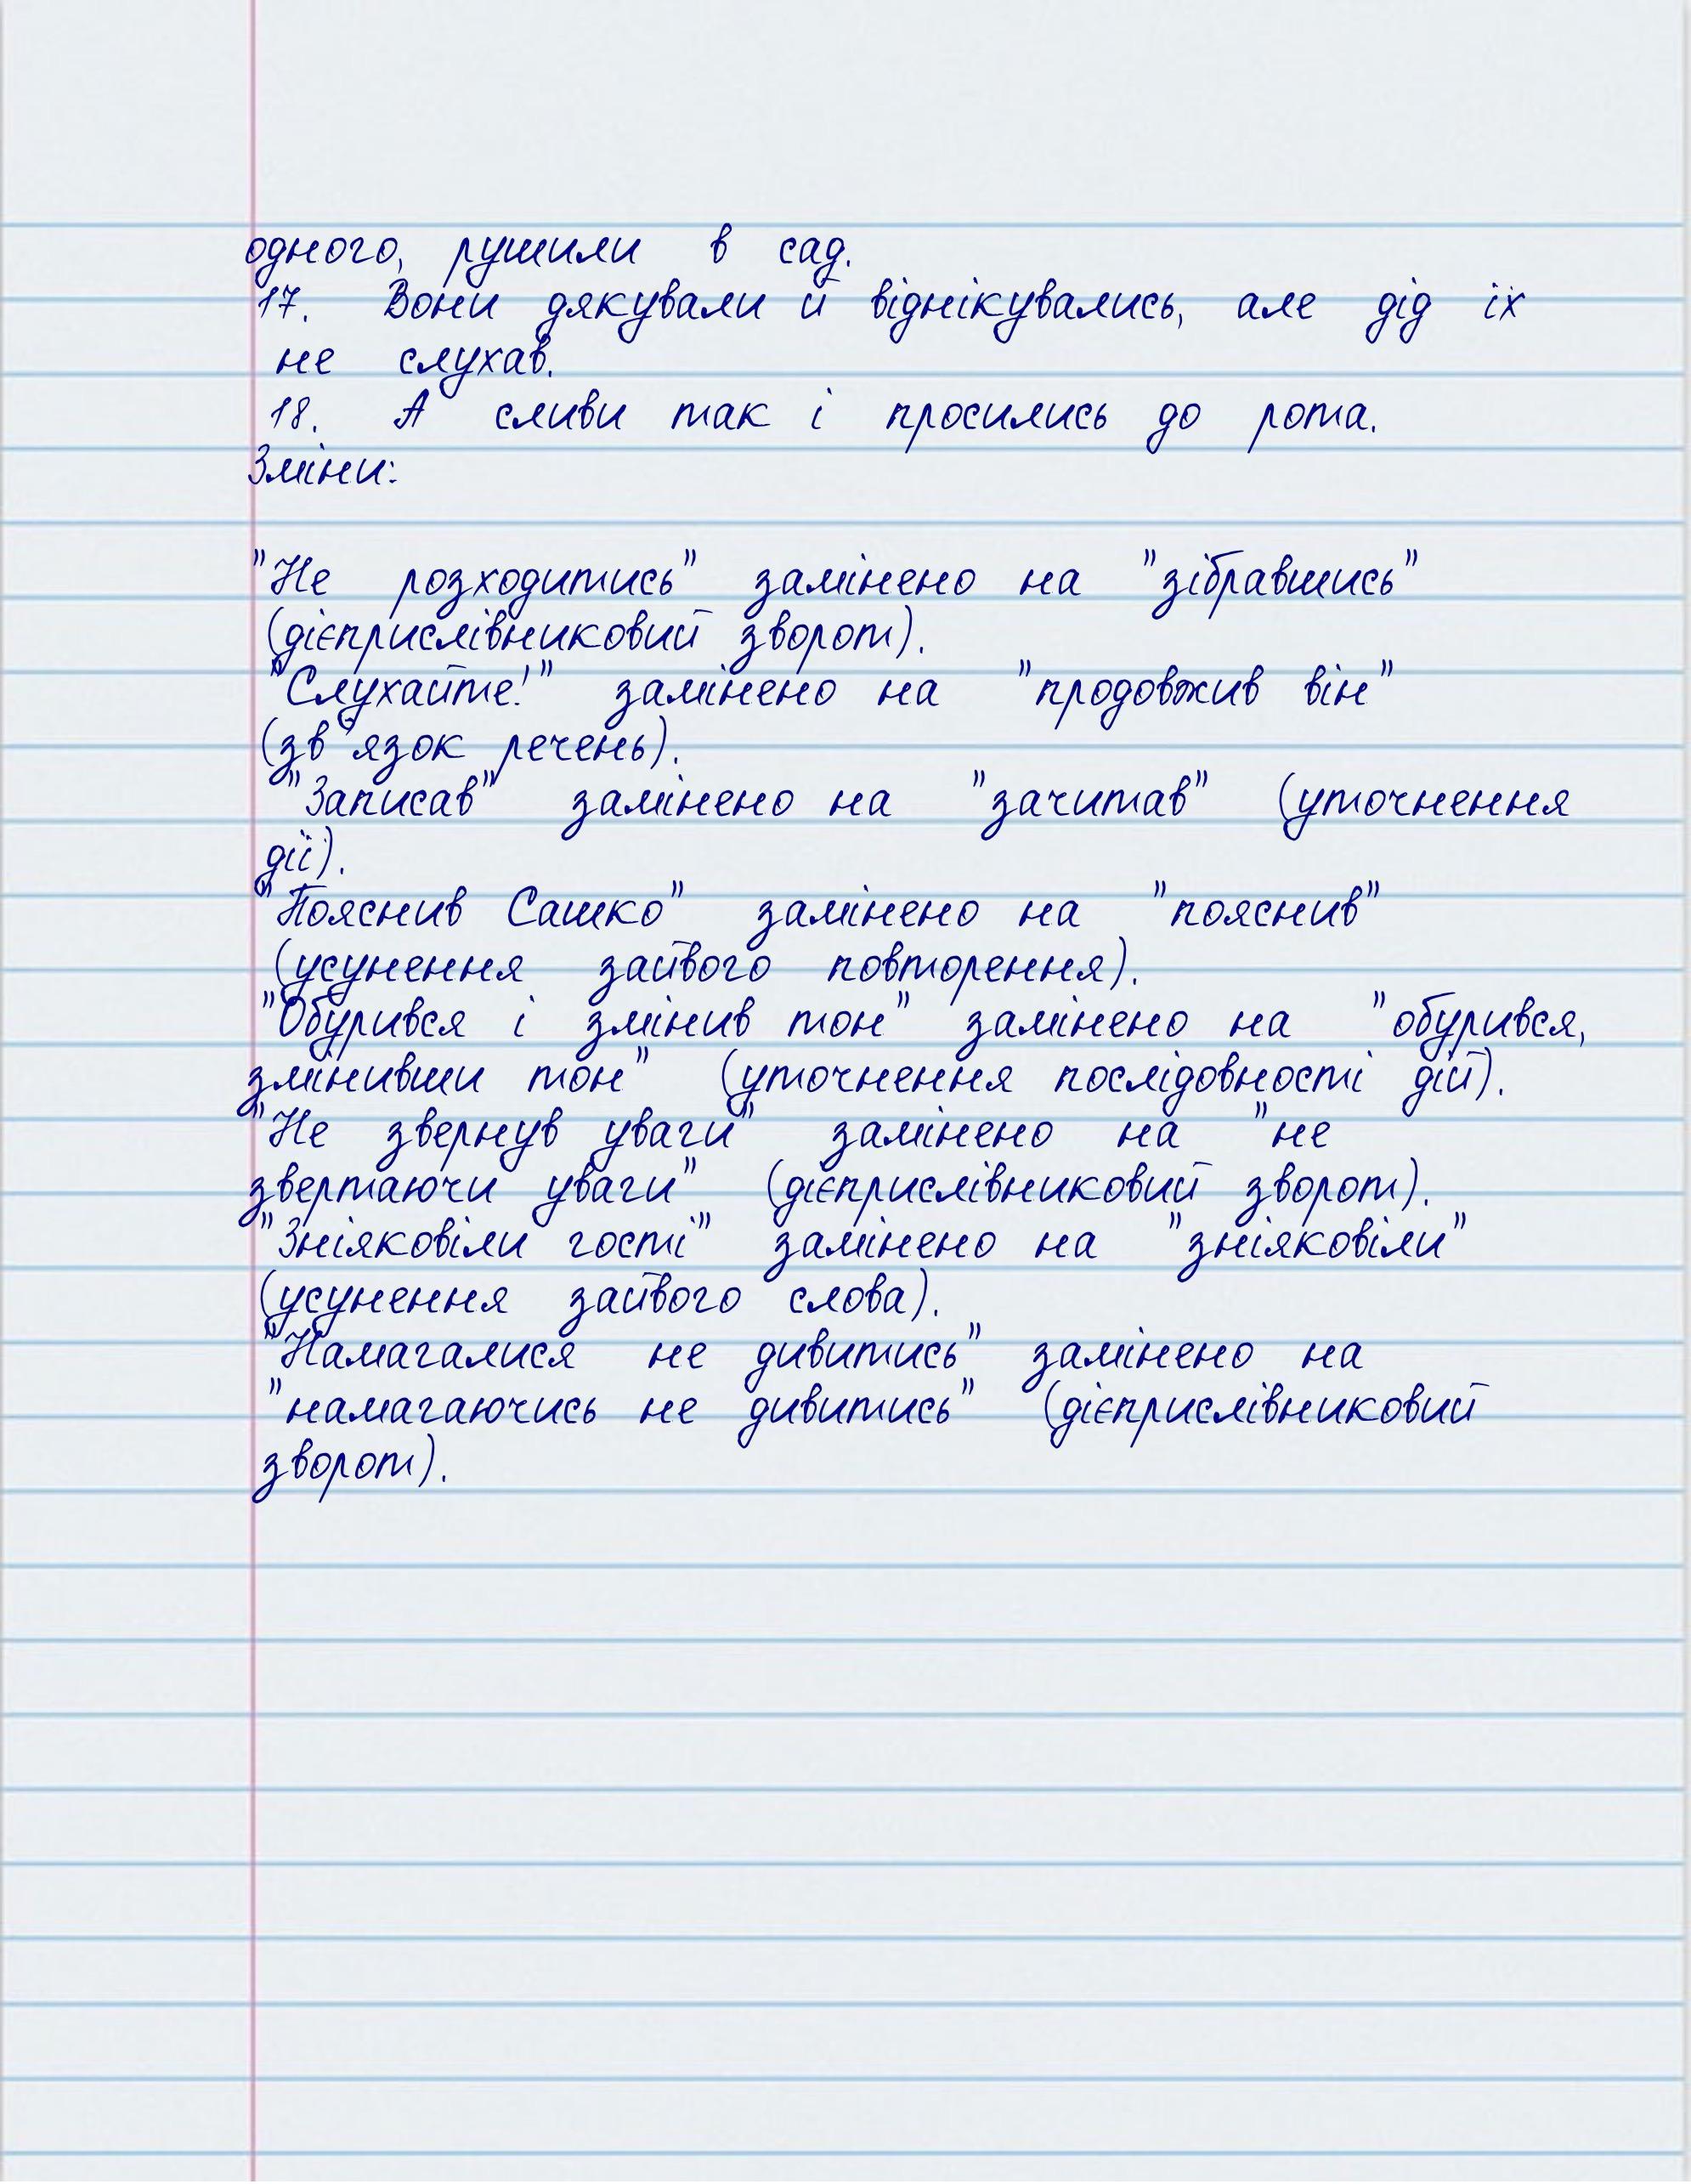 одного, рушили в сад.
17. Вони дякували й віднікувались, але дід їх
не слухав.
18. А сливи так і просились до рота.
Зміни:
"Не розходитись" замінено на "зібравшись"
(дієприслівниковий зворот).
"Слухайте!" замінено на "продовжив він"
(зв'язок речень).
"Записав" замінено на "зачитав" (уточнення
дії).
"Пояснив Сашко" замінено на "пояснив"
(усунення зайвого повторення).
"Обурився і змінив тон" замінено на "обурився,
змінивши тон" (уточнення послідовності дій).
"Не звернув уваги" замінено на "не
звертаючи уваги" (дієприслівниковий зворот).
"Зніяковіли гості" замінено на "зніяковіли"
(усунення зайвого слова).
"Намагалися не дивитись" замінено на
"намагаючись не дивитись" (дієприслівниковий
зворот).